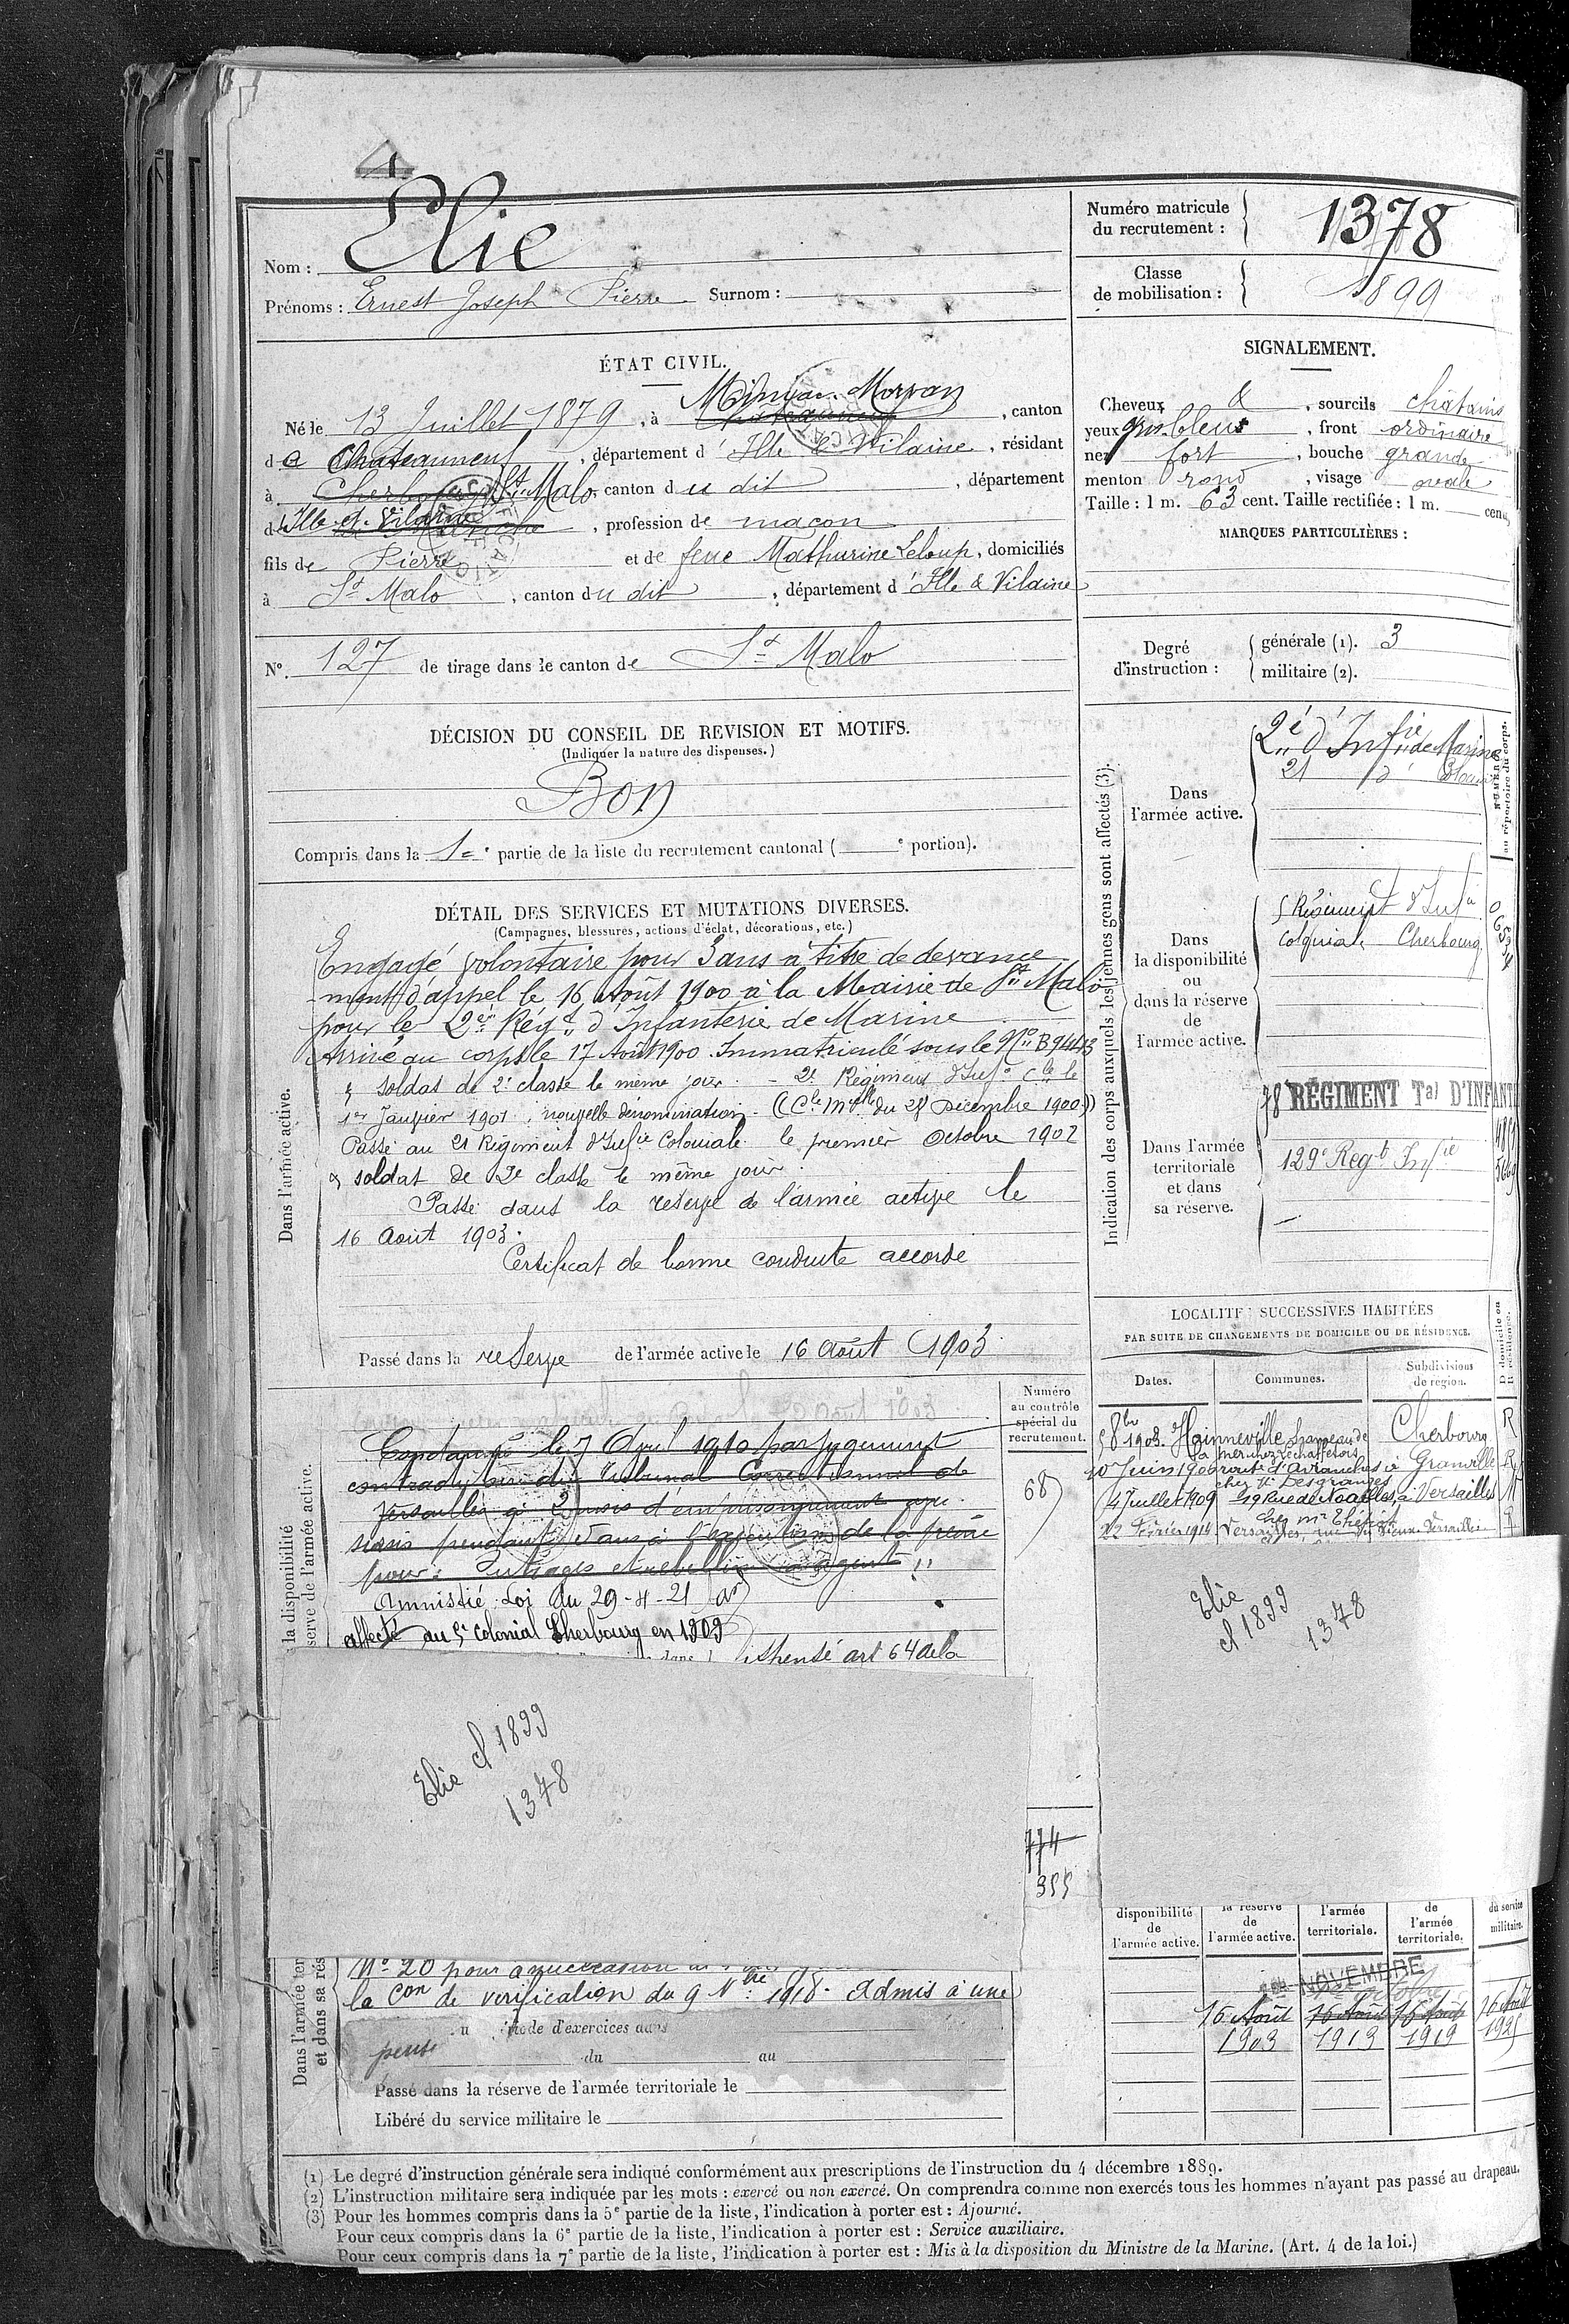 Elie
Nom :
Prénoms : Ernest Joseph Pierre Surnom :
Numéro matricule
du recrutement : 1378
Classe
de mobilisation : 1899
ÉTAT CIVIL.
Miniac-Morvan
Né le 13 Juillet 1879, à Châteauneuf, canton
de Chateauneuf, département d'Ille & Vilaine, résidant
à Cherbourg St Malo, canton du dit, département
d Ille-et-Vilaine Manche, profession de maçon
fils de Pierre et de feue Mathurine Leloup, domiciliés
à St Malo, canton du dit, département d'Ille & Vilaine
N° 127 de tirage dans le canton de St Malo
SIGNALEMENT.
Cheveux &, sourcils châtains
yeux gris-bleus, front ordinaire
nez fort, bouche grande
menton rond, visage ovale
Taille : 1 m. 63 cent. Taille rectifiée : 1 m. cent.
MARQUES PARTICULIÈRES :
Degré
d'instruction :
générale (1). 3
militaire (2).
DÉCISION DU CONSEIL DE REVISION ET MOTIFS.
(Indiquer la nature des dispenses.)
Bon
Compris dans la 1e partie de la liste du recrutement cantonal ( e portion).
DÉTAIL DES SERVICES ET MUTATIONS DIVERSES.
(Campagnes, blessures, actions d'éclat, décorations, etc.)
Dans l'armée active.
Engagé volontaire pour 3 ans à titre de devance
-ment d'appel le 16 Août 1900 à la Mairie de St Malo
pour le 2e Régt d'Infanterie de Marine
Arrivé au corps le 17 Août 1900. Immatriculé sous le No B9443
& soldat de 2e classe le même jour. - 2e Régiment d'Infie Cle le
1er Janvier 1901, nouvelle dénomination. (Cle Mlle du 28 Décembre 1900)
Passé au 21 Régiment d'Infie Coloniale le premier Octobre 1902
& soldat de 2e classe le même jour.
Passé dans la réserve de l'armée active le
16 Août 1903.
Certificat de bonne conduite accordé
Passé dans la reserve de l'armée active le 16 Août 1903
Indication des corps auxquels les jeunes gens sont affectés (3).
NUMÉROS
au répertoire du corps.
Dans
l'armée active.
2e d'Infie de Marine
21 d°
Dans
la disponibilité
ou
dans la réserve
de
l'armée active.
5 Régiment d'Infie
Coloniale Cherbourg
Dans l'armée
territoriale
et dans
sa réserve.
78 RÉGIMENT Tal D'INFANTE
129e Regt Infie
LOCALITÉS SUCCESSIVES HABITÉES
PAR SUITE DE CHANGEMENTS DE DOMICILE OU DE RÉSIDENCE.
Dates. Communes. Subdivisions
de région. D domicile ou
R résidence.
5 8bre 1903. Hainneville hameau de Cherbourg R
10 Juin 1906 route d'Avranches à Granville R
chez Mr Desgranges
4 Juillet 1909 49 Rue de Noailles, à Versailles
chez Mr
22 Février 1914 Versailles, rue du Versailles
Numéro
au contrôle
spécial du
recrutement.
68
la disponibilité
serve de l'armée active.
Condamné le 7 Avril 1910 par jugement
contradictoire du Tribunal Correctionnel de
Versailles à 2 mois d'emprisonnement avec
sursis pendant 5 ans à l'exécution de la peine
pour : outrages et rebellion à agent
Amnistié Loi du 29-4-21
affecté au 5e Colonial Cherbourg en 1909
art 64 de la
Elie cl 1899
1378
Elie
cl 1899
1378
774
355
Dans l'armée ter
et dans sa rés
No 20 pour
la Con de vérification du 9 Nbre 1918. Admis à une
pens
période d'exercices dans
du au
Passé dans la réserve de l'armée territoriale le
Libéré du service militaire le
disponibilité
de
l'armée active.
la réserve
de
l'armée active.
l'armée
territoriale.
de
l'armée
territoriale.
du service
militaire.
NOVEMBRE
16 Août 16 Août 16 Août 16 Août
1903 1913 1919 1925
(1) Le degré d'instruction générale sera indiqué conformément aux prescriptions de l'instruction du 4 décembre 1889.
(2) L'instruction militaire sera indiquée par les mots : exercé ou non exercé. On comprendra comme non exercés tous les hommes n'ayant pas passé au drapeau.
(3) Pour les hommes compris dans la 5e partie de la liste, l'indication à porter est : Ajourné.
Pour ceux compris dans la 6e partie de la liste, l'indication à porter est : Service auxiliaire.
Pour ceux compris dans la 7e partie de la liste, l'indication à porter est : Mis à la disposition du Ministre de la Marine. (Art. 4 de la loi.)